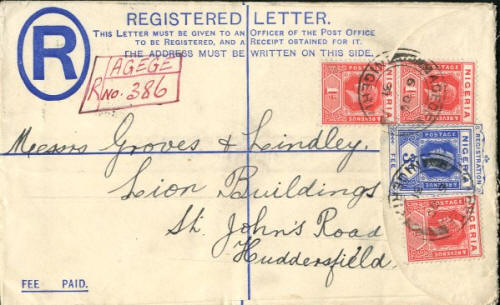 REGISTERED LETTER.
THIS LETTER MUST BE GIVEN TO AN OFFICER OF THE POST OFFICE
TO BE REGISTERED, AND A RECEIPT OBTAINED FOR IT.
THE ADDRESS MUST BE WRITTEN ON THIS SIDE.
R
AGEGE
R No. 386
NIGERIA
NIGERIA
POSTAGE
NIGERIA
REGISTRATION
FEE
NIGERIA
Messrs Groves & Lindley,
Lion Buildings
St. John's Road
Huddersfield.
FEE PAID.